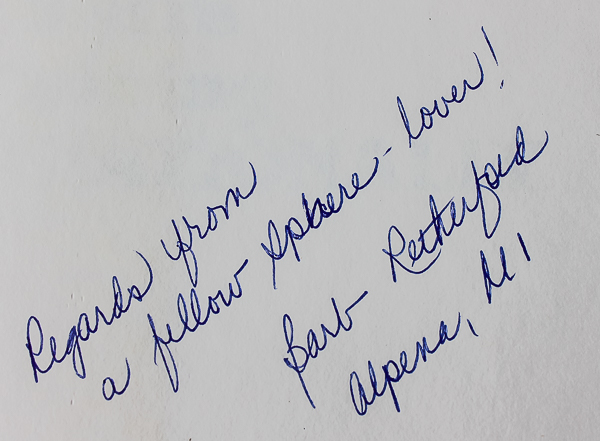 Regards from
a fellow Sphere-lover!
Barb Retherford
Alpena, MI